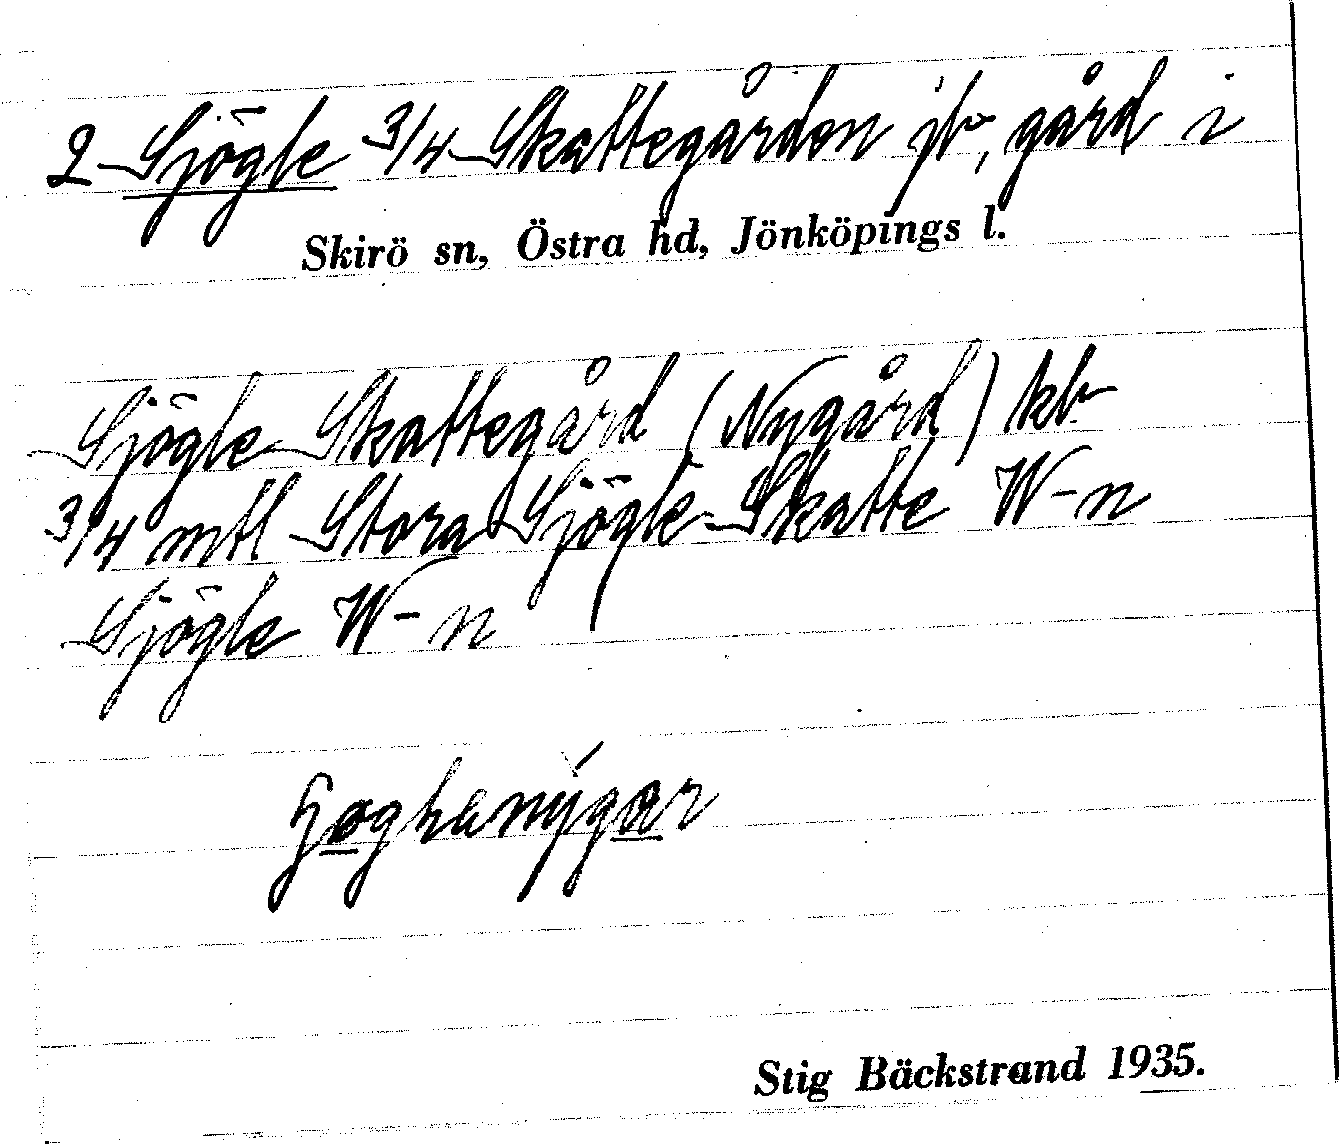 2 Sjögle 3/4 Skattegården jb, gård i
Skirö sn, Östra hd, Jönköpings l.
Sjögle Skattegård (Nygård) kb
3/4 mtl Stora Sjögle Skatte W-n
Sjögle W-n
Stig Bäckstrand 1935.